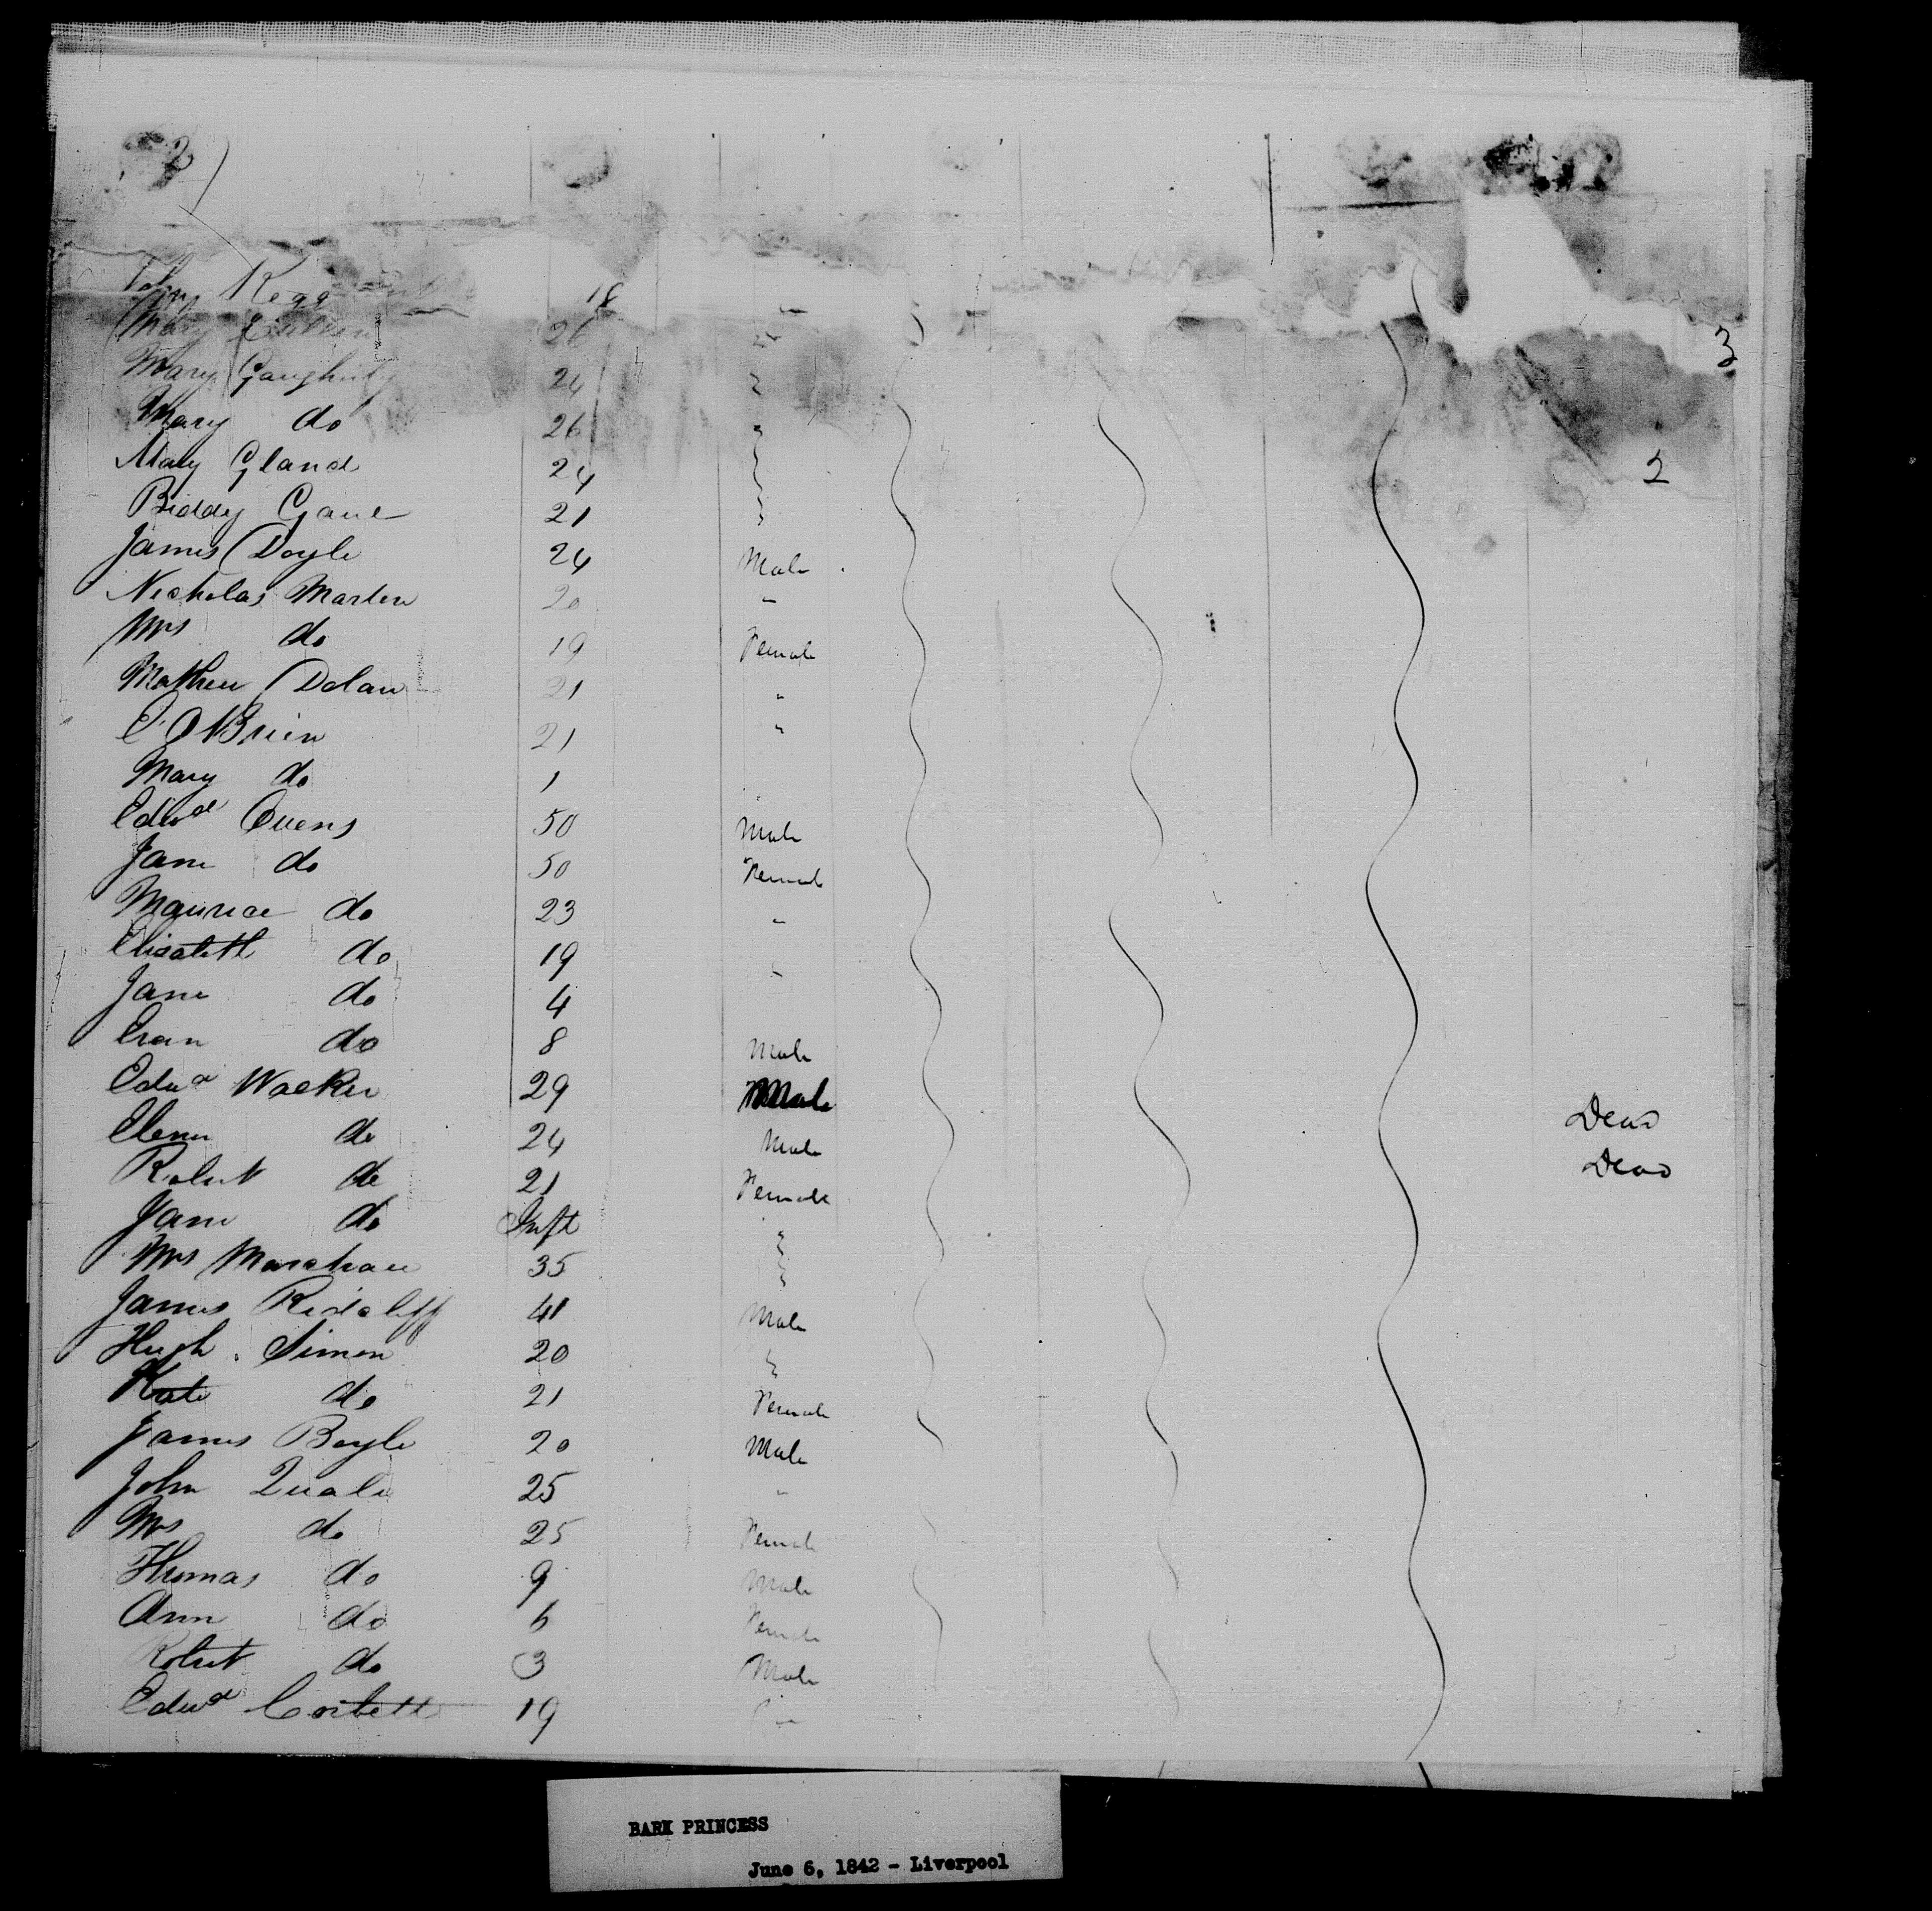 2
John Kegg 18 "
Mary 26 "
Mary Gaughity 24 "
3
Mary do 26 "
Mary Gland 24 "
2
Biddy Gaul 21 "
James Doyle 24 Male
Nicholas Marten 20 "
Mrs do 19 Female
Mathew Dolan 21 "
C. O'Brien 21 "
Mary do 1
Edwd Owens 50 Male
Jane do 50 Female
Maurice do 23 "
Elisabeth do 19 "
Jane do 4
Evan do 8 Male
Edwd Walker 29 Male
Elenr do 24 Male Dead
Robert do 21 Female Dead
Jane do Inft "
Mrs Marchau 35 "
James Ridcliff 41 Male
Hugh Simon 20 "
Kate do 21 Female
James Boyle 20 Male
John Quale 25 "
Mrs do 25 Female
Thomas do 9 Male
Ann do 6 Female
Robert do 3 Male
Edwd Corbett 19 "
BARK PRINCESS
June 6, 1842 - Liverpool